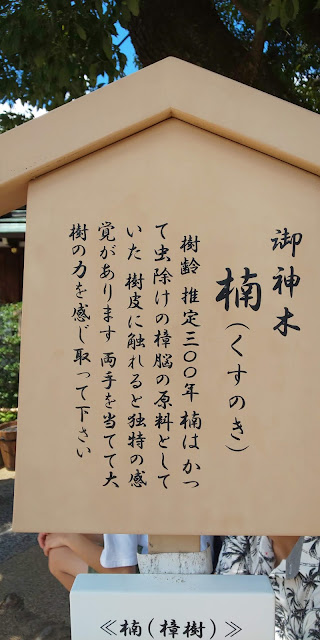 御神木
楠(くすのき)
樹齢 推定三〇〇年 楠はかつ
て虫除けの樟脳の原料として
いた 樹皮に触れると独特の感
覚があります 両手を当てて大
樹の力を感じ取って下さい
≪楠(樟樹)≫